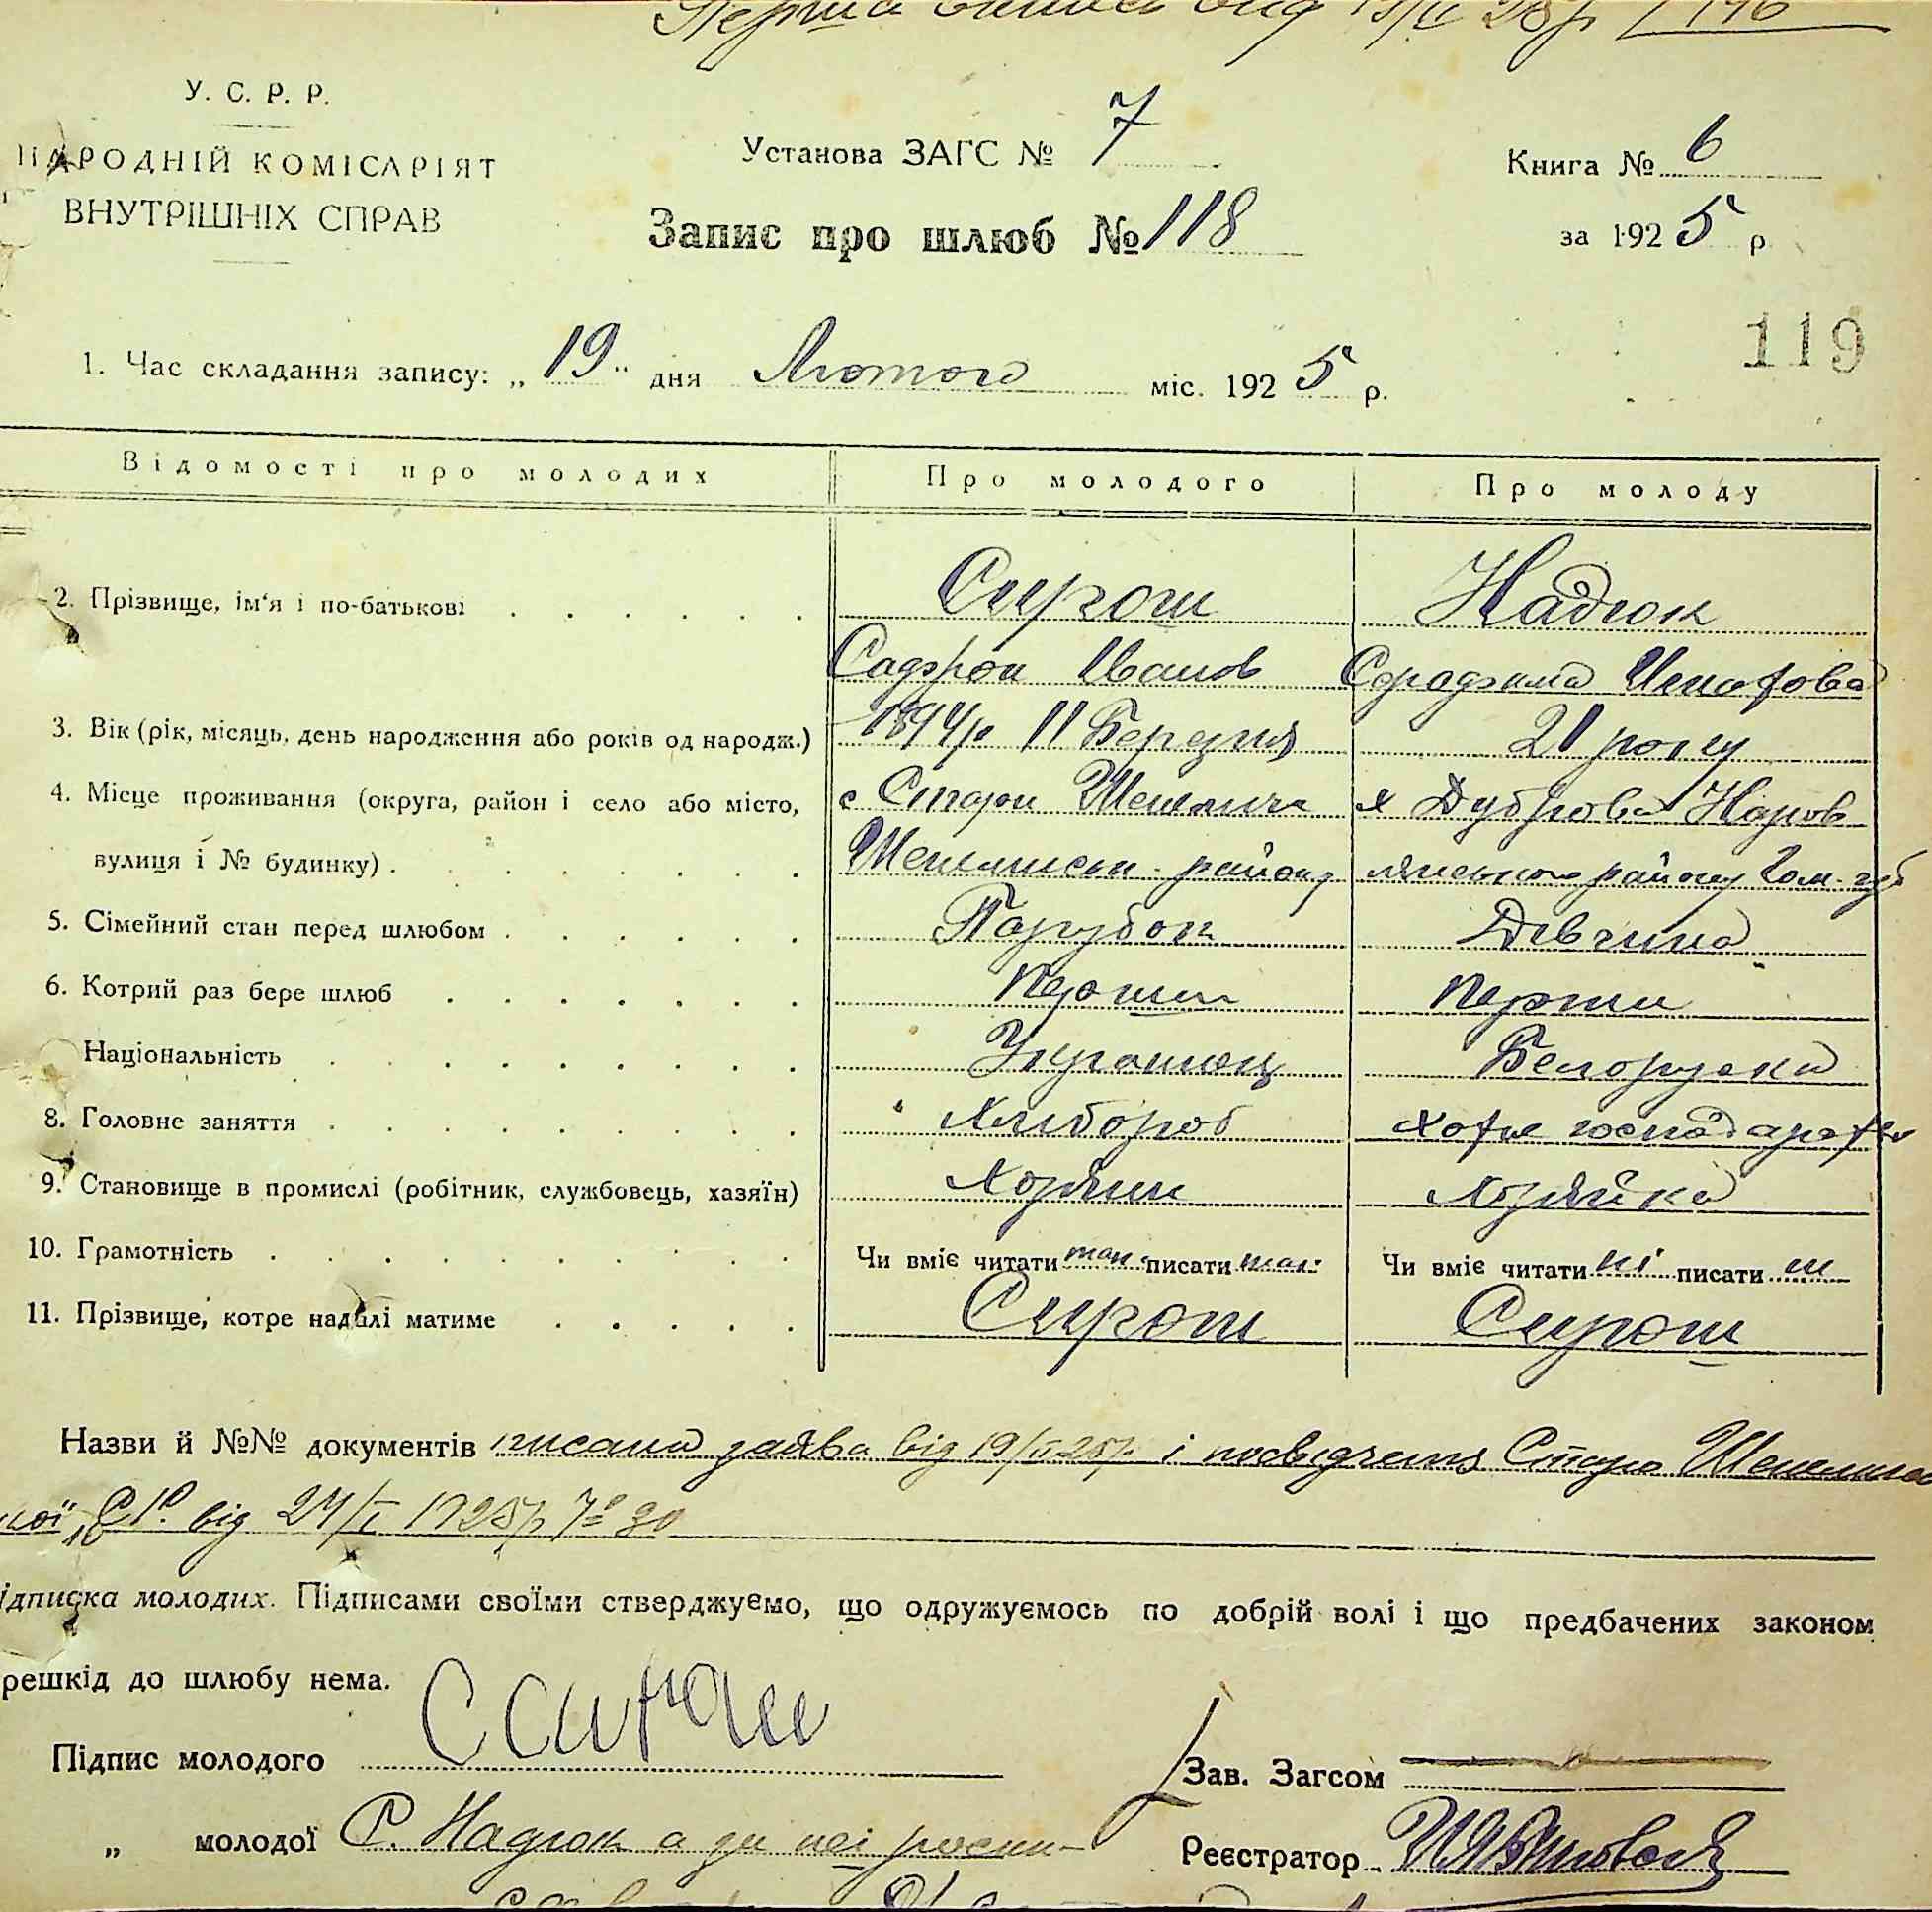 У. С. Р. Р.
НАРОДНІЙ КОМІСАРІЯТ
ВНУТРІШНІХ СПРАВ
Установа ЗАГС № 7
Книга № 6
Запис про шлюб № 118
за 1925 р.
119
1. Час складання запису: „19" дня Лютого міс. 1925 р.
Відомості про молодих Про молодого Про молоду
2. Прізвище, ім'я і по-батькові Сирош Надток
Сафрон Іванов
3. Вік (рік, місяць, день народження або років од народж.) 1894 р 11 Березня 21 року
4. Місце проживання (округа, район і село або місто, с Стари Шепеличи х Дуброва Наров
вулиця і № будинку). Шепелиськ. району лянського району Гом. губ
5. Сімейний стан перед шлюбом Парубок Дівчина
6. Котрий раз бере шлюб перши перши
Національність Украинец Белоруска
8. Головне заняття Хлибороб хатне господарство
9. Становище в промислі (робітник, службовець, хазяїн) Хозяин Хозяйка
10. Грамотність Чи вміє читати так писати так Чи вміє читати ні писати ні
11. Прізвище, котре надалі матиме Сирош Сирош
Назви й №№ документів писана заява від 19/II 25 р. і посвідчення Старо Шепелись
кої С/Р. від 24/I 1925 р № 30
ідписка молодих. Підписами своїми стверджуємо, що одружуємось по добрій волі і що предбачених законом
решкід до шлюбу нема.
Підпис молодого
Зав. Загсом
„ молодої Надток а за неї росп-
Реєстратор